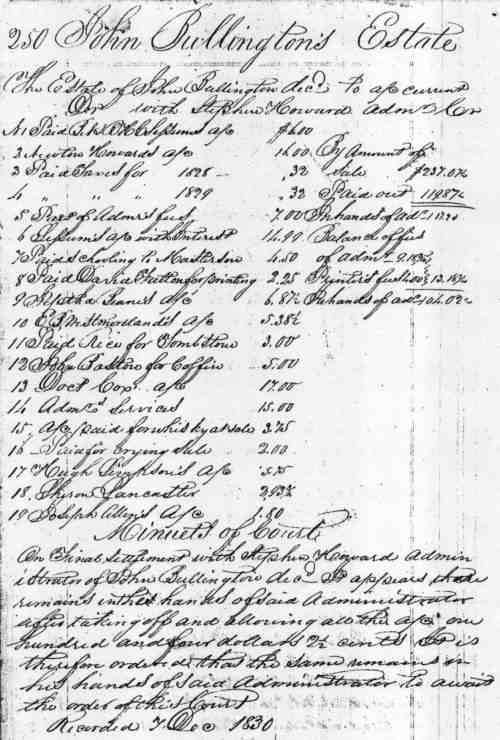 250 John Bullington's Estate
The Estate of John Bullington decd. To a/c current
Dr with Stephen Howard admr. Cr
No 1 Paid a/c $6.00
2 Newton Howard's a/c 16.00 By Amount of
3 Paid Taxes for 1828 ,32 Sale $237.07½
4 " " " 1829 ,32 Paid out 119.87½
5 of Admr's fees 7.00 In hands of adr.
6 a/c with Interest 14.99 Balance of fees
7 Paid schooling to Masterson 4.50 of admr.
8 Paid David for printing 2.25 Printer's fees
9 a/c 6.87½ In hands of adr. 104.02½
10 E. B. M. Stmoreland's a/c 5.38½
11 Paid Rice for Tombstone 3.00
12 John Baston for Coffin 5.00
13 Doct Cox a/c 17.00
14 Admrs. Services 15.00
15 A/c paid for whisky at sale 3.75
16 Paid for crying Sale 2.00
17 Hugh Simpson's a/c 5.75
18 Lancaster
19 Joseph Allen's A/c 1.50
Minuets of Court
On Final Settlement with Stephen Howard Admin
istrator of John Bullington decd. It appears there
remains in the hands of said Administrator
after taking off and allowing all the a/cs one
hundred and four dollars 2½ cents It is
therefore ordered that the same remains in
his hands of said Administrator to await
the order of this Court
Recorded 7 Dec 1830